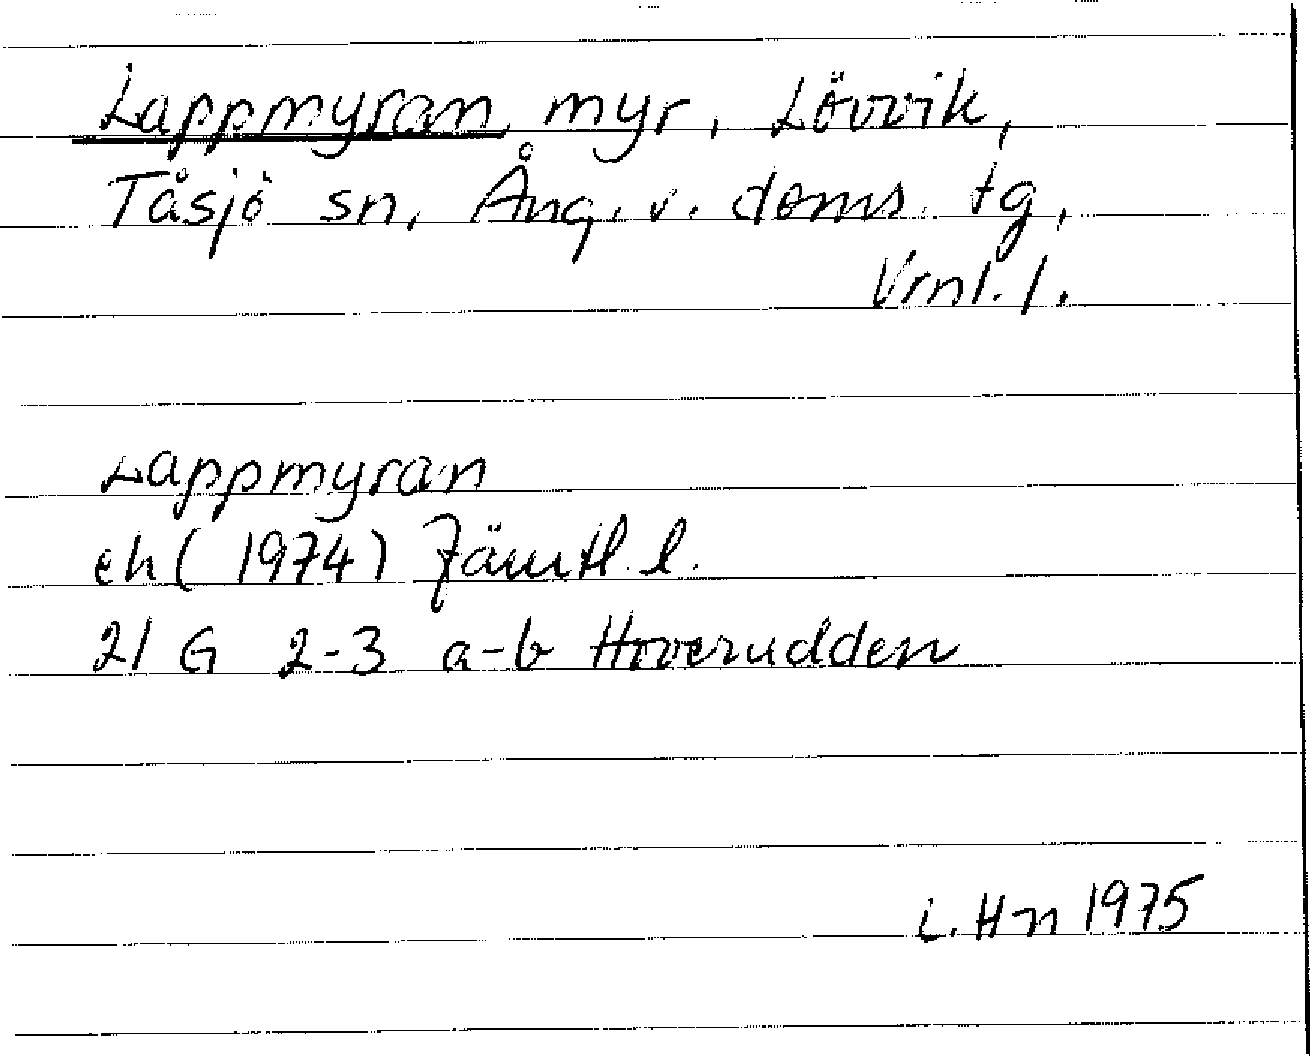 Lappmyran myr, Lövvik,
Tåsjö sn, Ång. v. doms. tg,
Vrnl. l.
Lappmyran
ek (1974) Jämtl. l.
21 G 2-3 a-b Hoverudden
L. Hn 1975